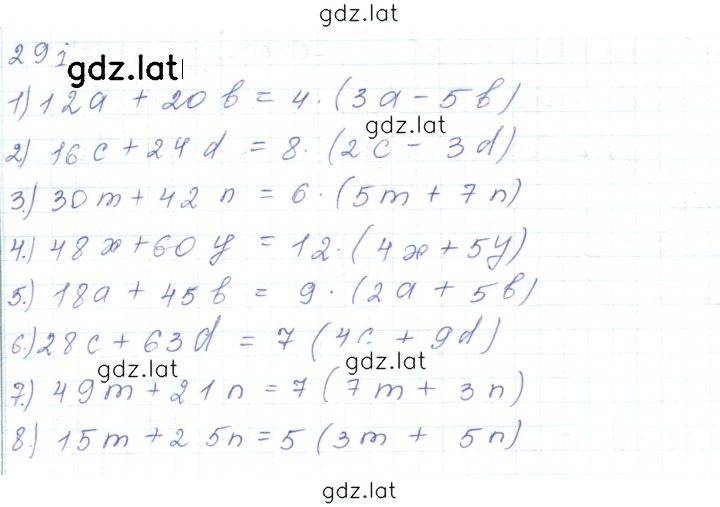 gdz.lat
291
gdz.lat
1) 12a + 20b = 4·(3a - 5b)
gdz.lat
2) 16c + 24d = 8·(2c - 3d)
3.) 30m + 42n = 6·(5m + 7n)
4.) 48x + 60y = 12·(4x + 5y)
5.) 18a + 45b = 9·(2a + 5b)
6.) 28c + 63d = 7 (4c + 9d)
gdz.lat gdz.lat
7.) 49m + 21n = 7 (7m + 3n)
8.) 15m + 25n = 5 (3m + 5n)
gdz.lat